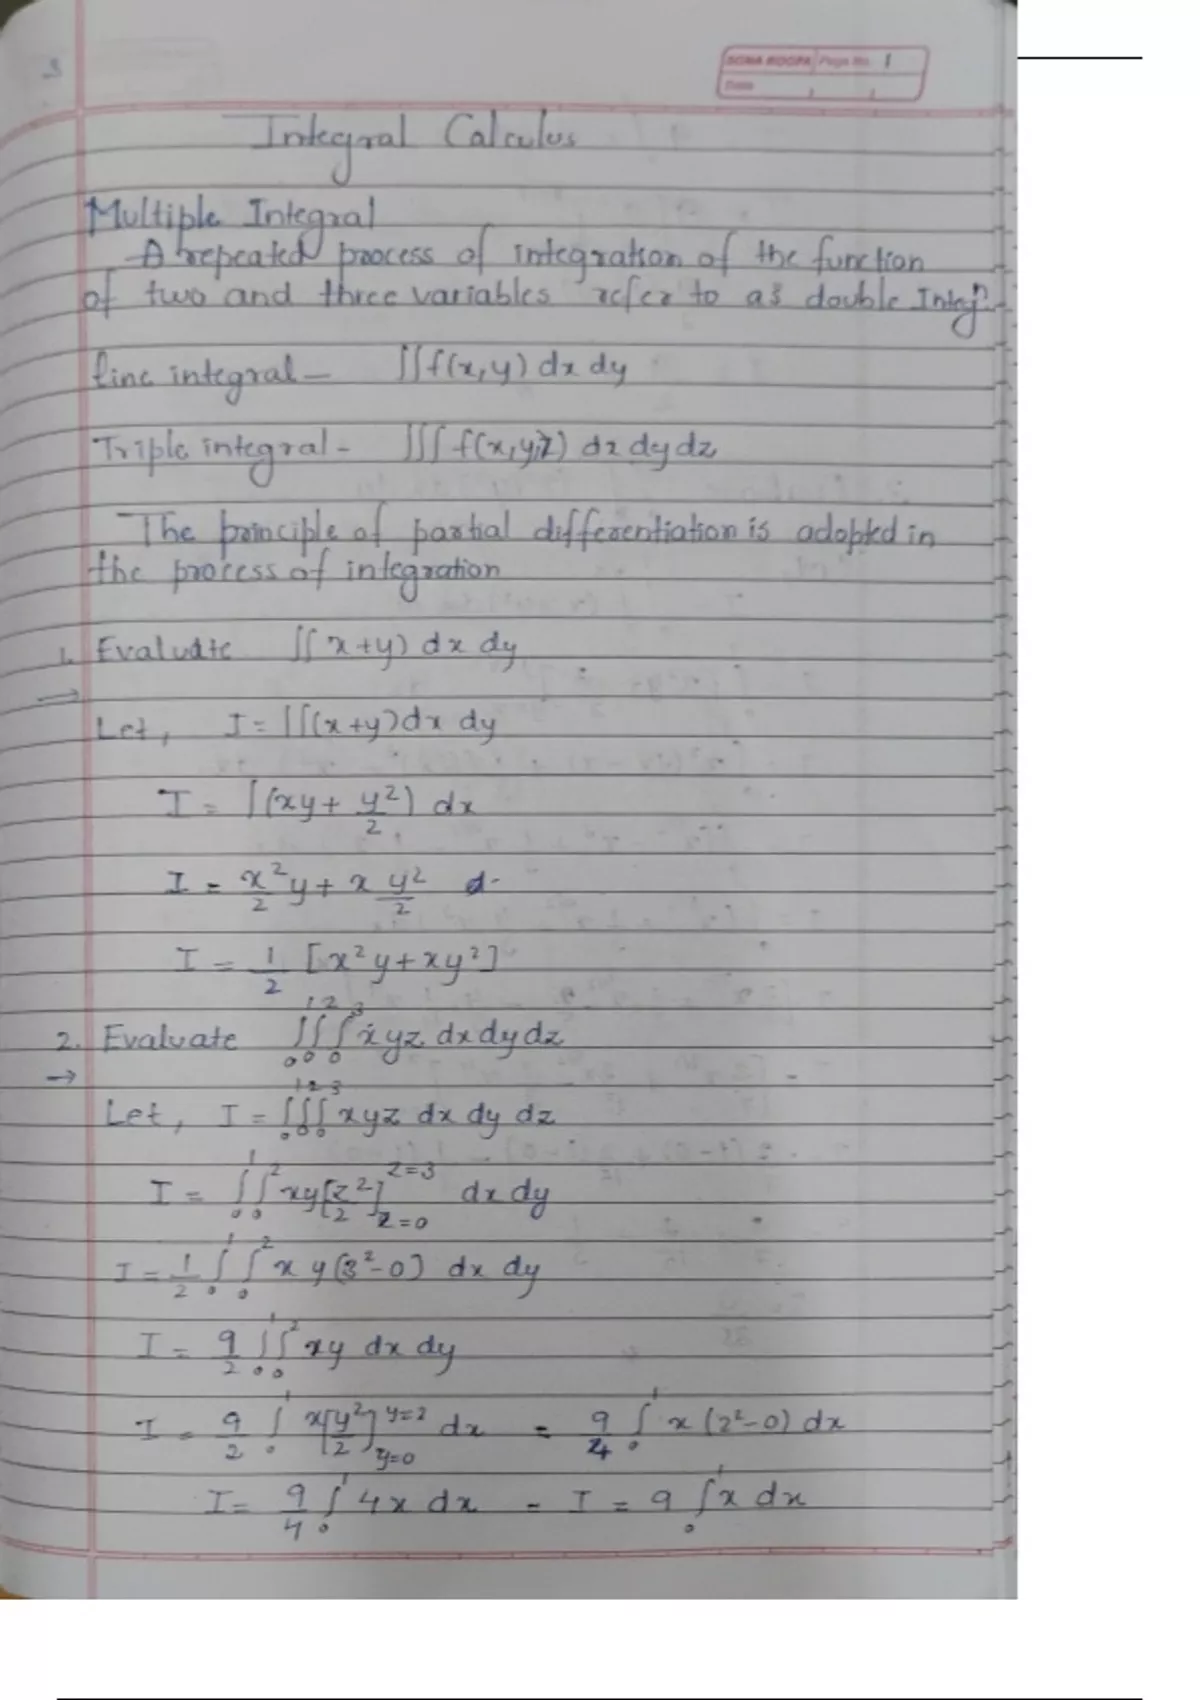 3
SONA ROOPA Page No. 1
Date
Integral Calculus
Multiple Integral
A repeated process of integration of the function
of two and three variables refer to as double Integ^n.
line integral — ∬f(x,y) dx dy
Triple integral - ∭ f(x,y,z) dz dy dz
The principle of partial differentiation is adopted in
the process of integration
1. Evaluate ∬ x+y) dx dy
→
Let, I = ∬(x+y)dx dy
I = ∫(xy + y²/2) dx
I = x²/2 y + x y²/2 d-
I = 1/2 [x²y + xy²]
2. Evaluate ∫₀¹∫₀²∫₀³ xyz dx dy dz
→
Let, I = ∫₀¹∫₀²∫₀³ xyz dx dy dz
I = ∫₀¹∫₀² xy[z²/2]_{z=0}^{z=3} dx dy
I = 1/2 ∫₀¹∫₀² xy(3²-0) dx dy
I = 9/2 ∫₀¹∫₀² xy dx dy
I = 9/2 ∫₀¹ x[y²/2]_{y=0}^{y=2} dx = 9/4 ∫₀¹ x (2²-0) dx
I = 9/4 ∫₀¹ 4x dx - I = 9 ∫₀¹ x dx